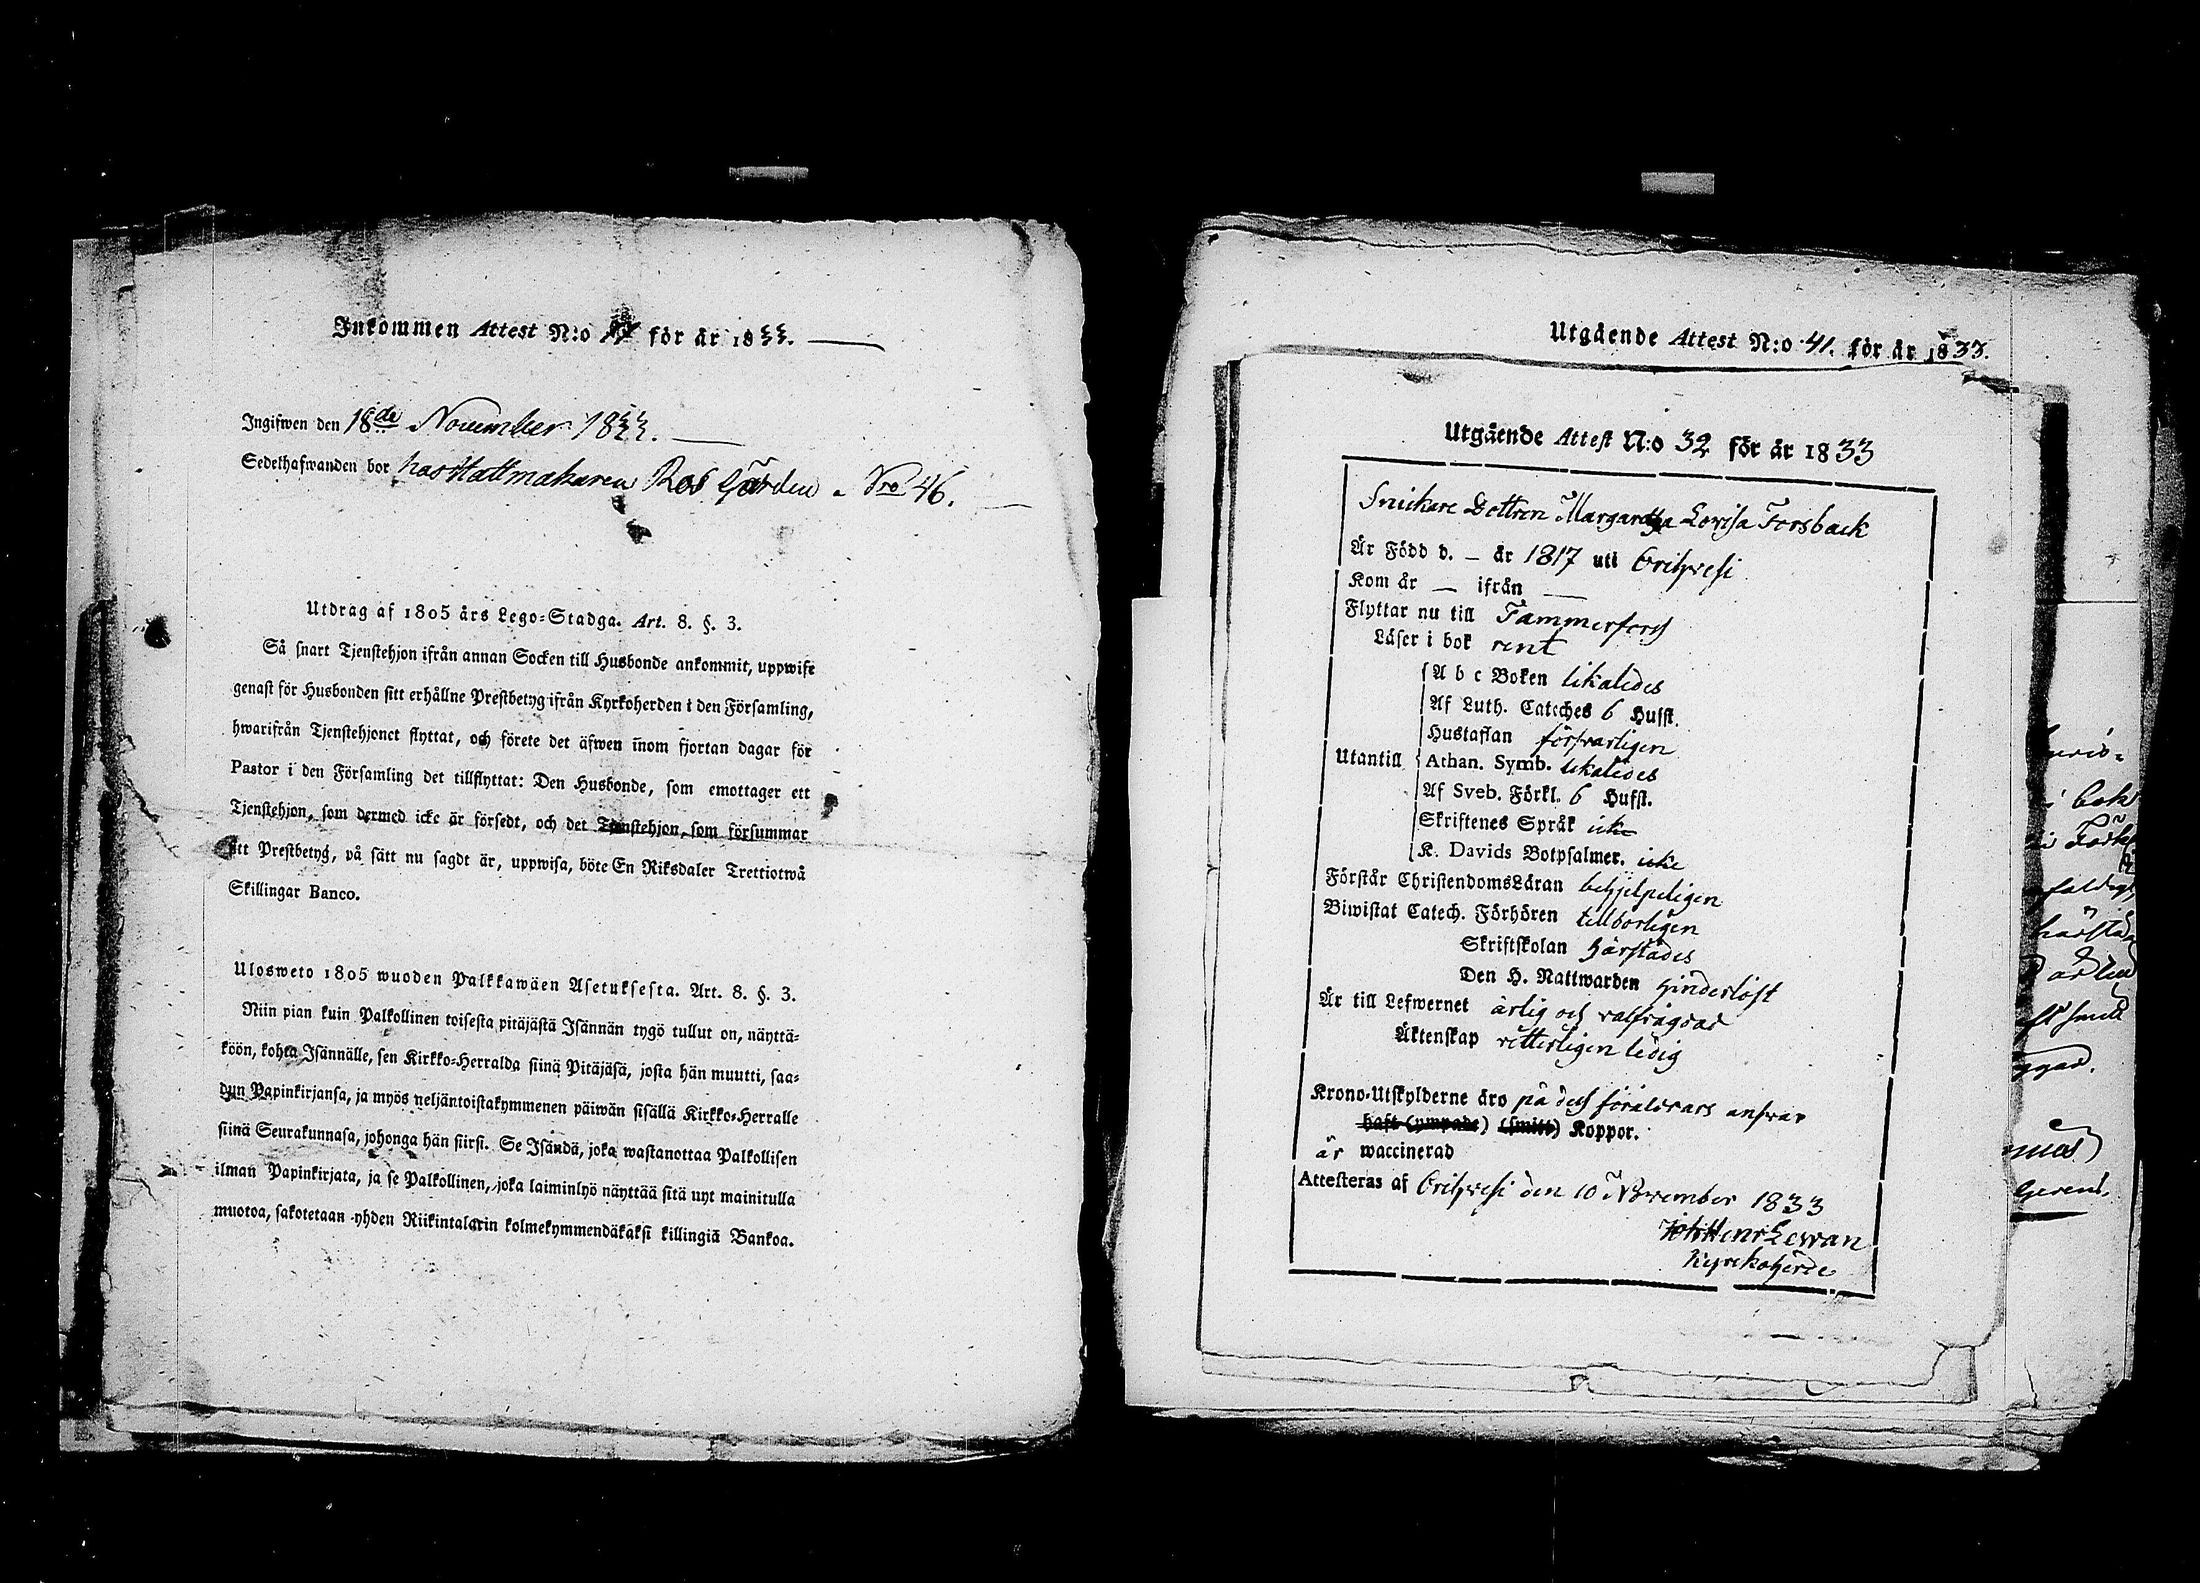 Inkommen Attest N:o för år 1833.
Ingifwen den 18de November 1833.
Sedelhafwanden bor hos Hattmakaren Ros Gården Nro 46.
Utdrag af 1805 års Lego-Stadga. Art. 8. §. 3.
Så snart Tjenstehjon ifrån annan Socken till Husbonde ankommit, uppwise
genast för Husbonden sitt erhållne Prestbetyg ifrån Kyrkoherden i den Församling,
hwarifrån Tjenstehjonet flyttat, och förete det äfwen inom fjortan dagar för
Pastor i den Församling det tillflyttat: Den Husbonde, som emottager ett
Tjenstehjon, som dermed icke är försedt, och det Tjenstehjon, som försummar
att Prestbetyg, på sätt nu sagdt är, uppwisa, böte En Riksdaler Trettiotwå
Skillingar Banco.
Ulosweto 1805 wuoden Palkkawäen Asetuksesta. Art. 8. §. 3.
Niin pian kuin Palkollinen toisesta pitäjästä Isännän tygö tullut on, näyttä-
köön, kohta Isännälle, sen Kirkko-Herralda siinä Pitäjäsä, josta hän muutti, saa-
dun Papinkirjansa, ja myös neljäntoistakymmenen päiwän sisällä Kirkko-Herralle
siinä Seurakunnasa, johonga hän siirsi. Se Isändä, joka wastanottaa Palkollisen
ilman Papinkirjata, ja se Palkollinen, joka laiminlyö näyttää sitä nyt mainitulla
muotoa, sakotetaan yhden Riikintalarin kolmekymmendäkaksi killingiä Bankoa.
Utgående Attest N:o 41. för år 1833.
Utgående Attest N:o 32 för år 1833
Snickare Dottren Margaretha Lovisa Forsback
Är Född d. — år 1817 uti Orihvesi
Kom år — ifrån —
Flyttar nu till Tammerfors
Läser i bok rent
A b c Boken likaledes
Af Luth. Cateches 6 Hufst.
Hustaflan försvarligen
Utantill Athan. Symb. likaledes
Af Sveb. Förkl. 6 Hufst.
Skriftenes Språk icke
K. Davids Botpsalmer. icke
Förstår ChristendomsLäran behjelpeligen
Biwistat Catech. Förhören tillborligen
Skriftskolan härstädes
Den H. Nattwarden hinderlöst
Är till Lefwernet ärlig och välfrägdad
Äktenskap vetterligen ledig
Krono-Utskylderne äro på dess föräldrars ansvar
haft (ympade) (smitt) Koppor.
är waccinerad
Attesteras af Orihvesi den 10 November 1833
Joh Henr Lewan
Kyrckoherde
i bok